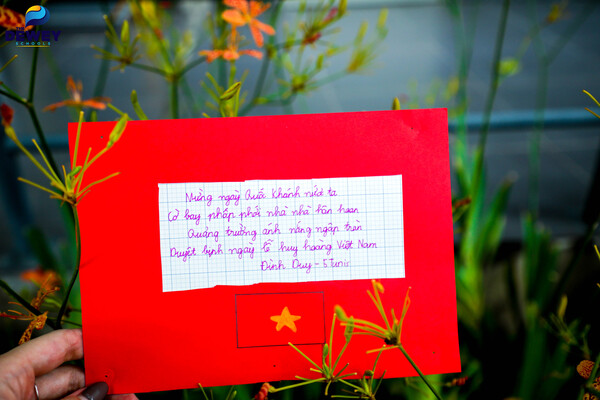 DEWEY
SCHOOLS
Mừng ngày Quốc Khánh nước ta
Cờ bay phấp phới nhà nhà hân hoan
Quảng trường ánh nắng ngập tràn
Duyệt binh ngày lễ huy hoàng Việt Nam
Đình Duy - 5 Tunis